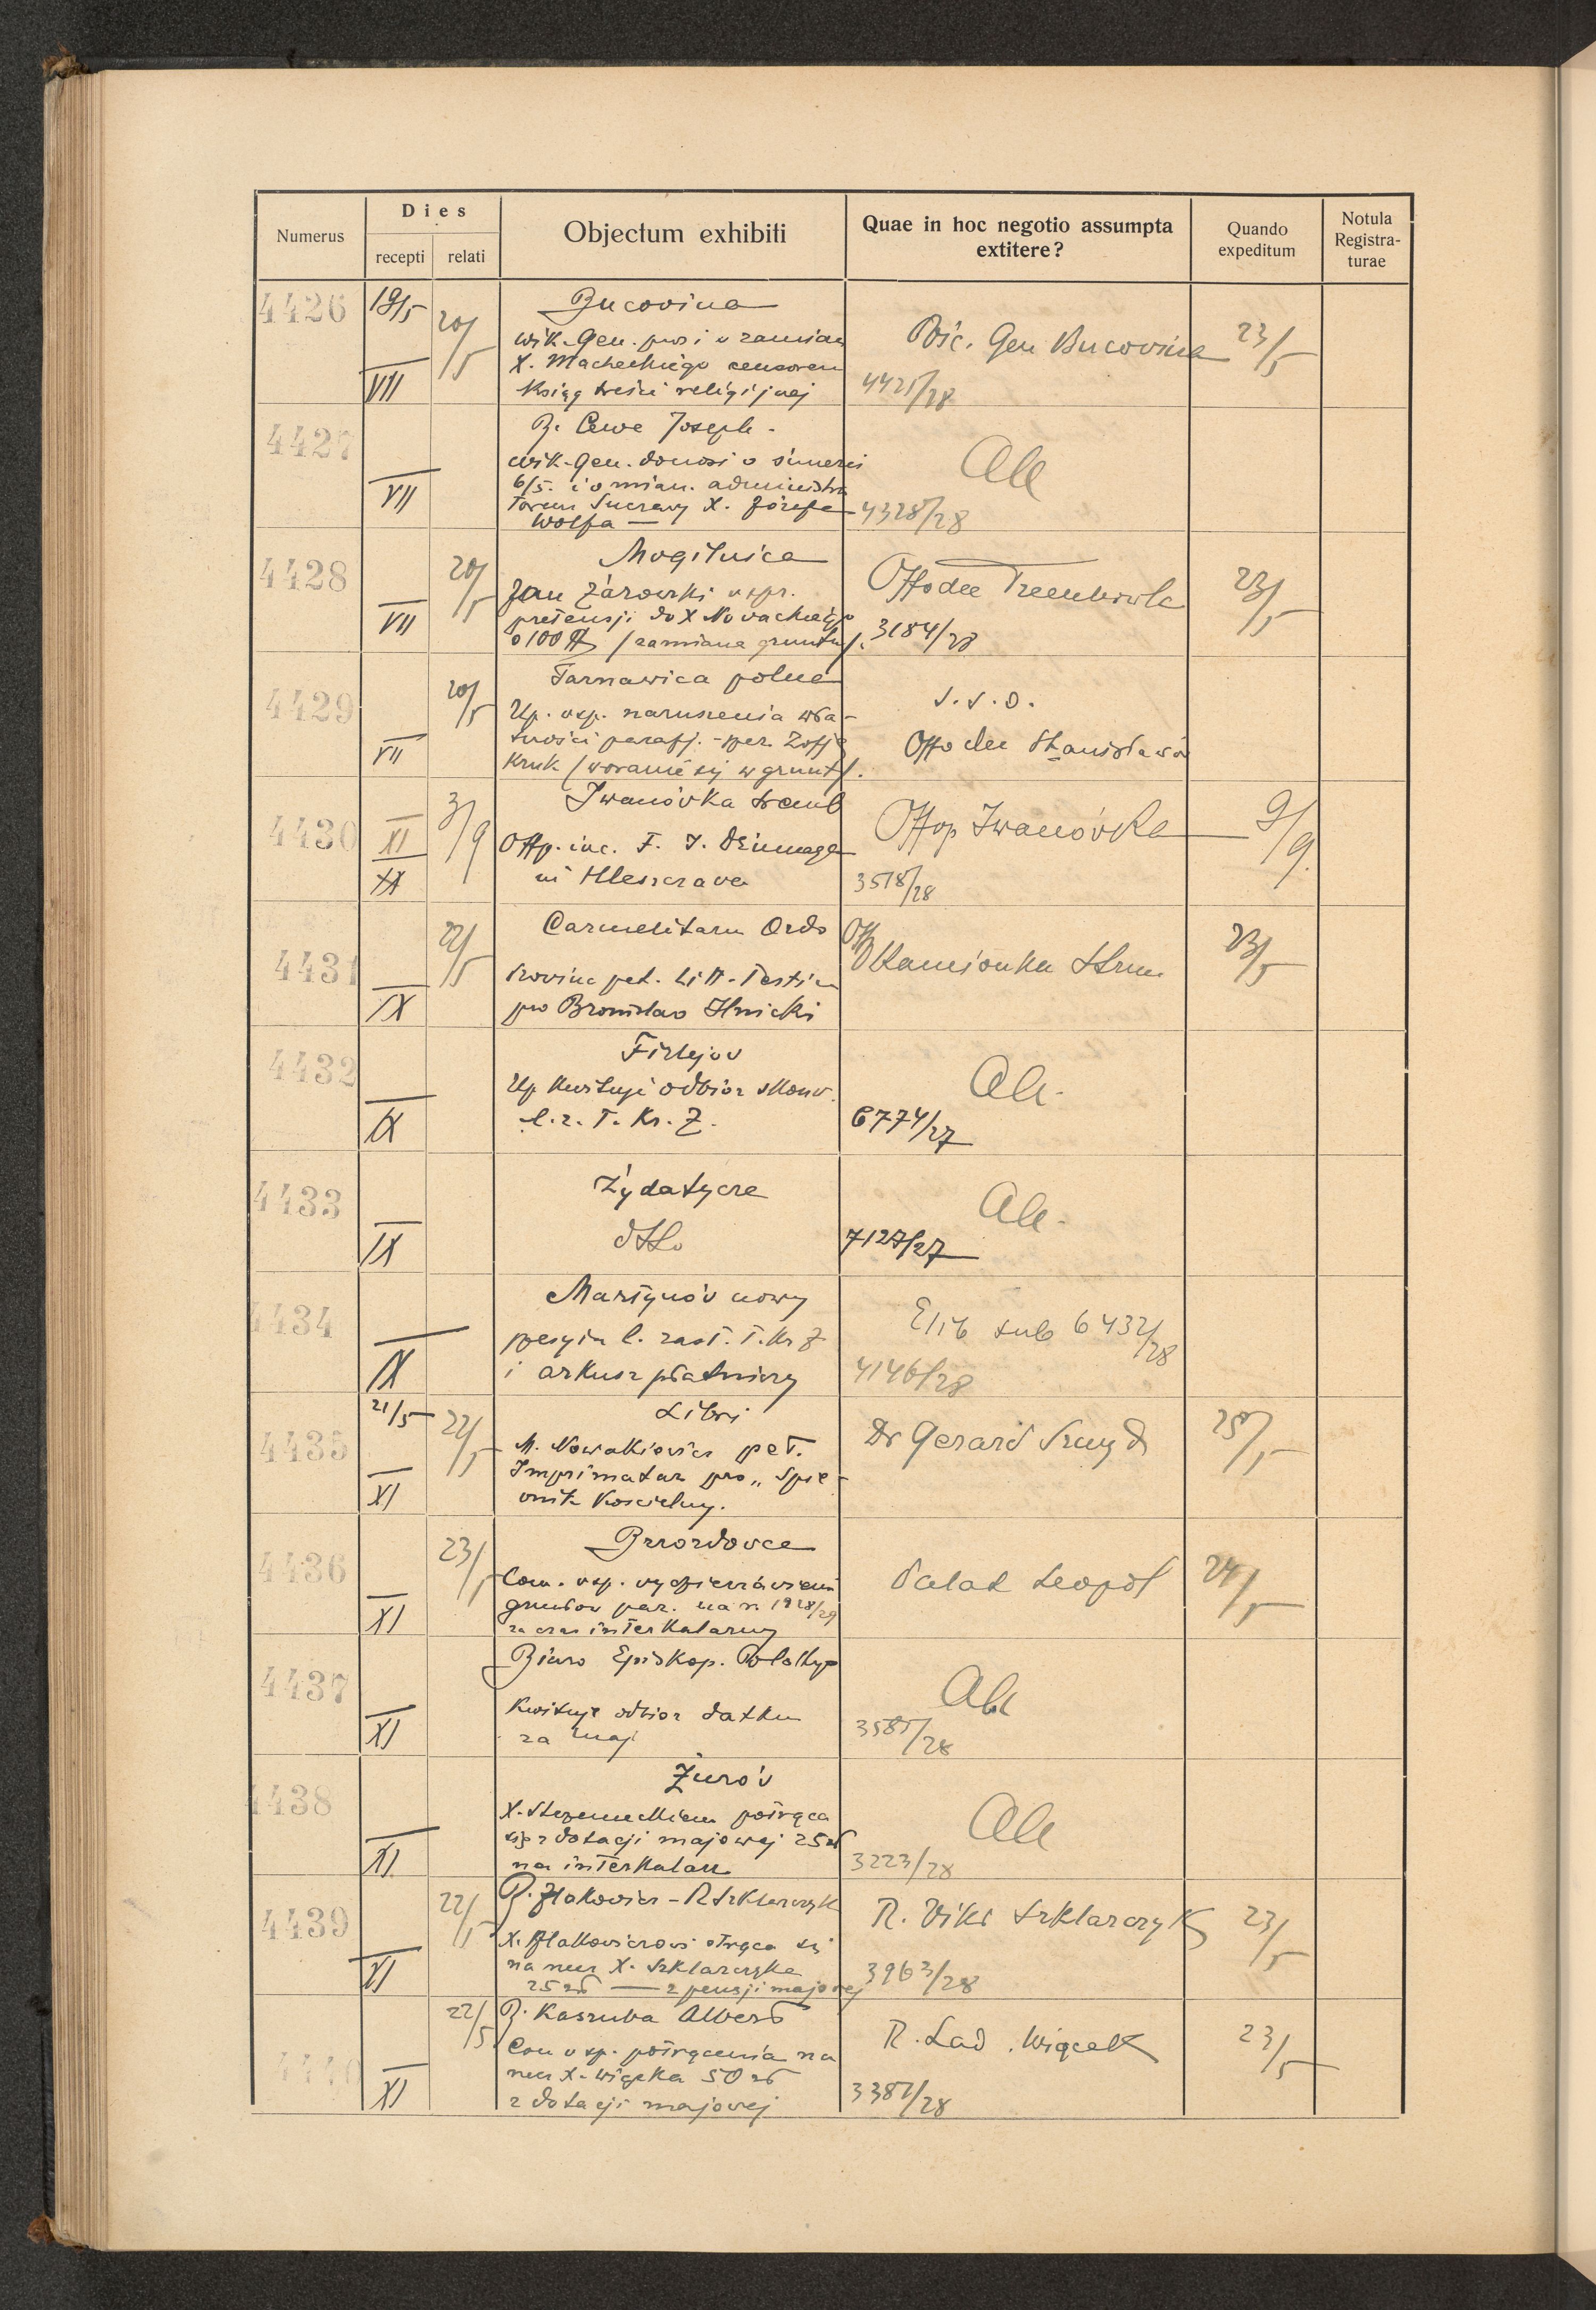 Numerus
Dies
recepti relati
Objectum exhibiti
Quae in hoc negotio assumpta
extitere?
Quando
expeditum
Notula
Registra-
turae
4426 19/5 20/5 Bucovina
wik. Gen. prosi o zamian
X. Macheckiego censorem
ksiąg treści religijnej
VII
Vic. Gen Bucovina 23/5
4425/28
4427 Joseph.
wik. Gen. donosi o śmierci
6/5. i o mian. administra
torem Suczawy X. Józefa
Wolfa
VII
4328/28
4428 20/5 Mogilnica
Jan Żarowski w spr.
pretensji do X Novackiego
o 100 /zamiana gruntu/.
VII
Offo dec Trembowla 23/5
3184/28
4429 20/5 Tarnawica polna
Up. wsp. naruszenia wła-
sności parafj. - per. Zofję
Kruk /woranie się w grunt/.
VII
s. s. o.
Offo dec Stanisławów
4430 3/9 Iwanówka tremb
Offp. inc. F. J.
XI
IX
Offop Iwanówka 9/9.
3518/28
4431 22/5 Carmelitarum Ordo
Provinc pet. Litt. Testim
pro Bronislao Ilnicki
IX
Off Kamionka Strum 23/5
4432 Firlejów
Up kwituje odbiór
l. z. T. Kr. Z.
IX
6774/27
4433 Żydatycze
dtto
IX
7127/27
4434 Martynów nowy
l. zast. T. Kr Z
i arkusz płatniczy
IX
sub 6432/28
4146/28
4435 21/5 22/5 Libri
M. Nowakiewicz pet.
Imprimatur pro „Spie-
wnik Kościelny.
XI
Dr Gerard Szmyd 25/5
4436 23/5 Brzozdowce
Com. wsp. wydzierżawienia
gruntów par. na r. 1928/29
za czas interkalarny
XI
Palat Leopol 24/5
4437 Biuro Episkop.
Kwituje odbiór datku
za maj
XI
3585/28
4438 Żurów
X. potrąca
się z dotacji majowej 25 zł
na interkalar
XI
3223/28
4439 22/5 R. Szklarczyk
X. otrąca się
na rzecz X. Szklarczyka
25 zł — z pensji majowej
XI
R. Vikt Szklarczyk 23/5
3963/28
4440 22/5 R. Kaszuba Albert
Con wsp. potrącenia na
rzecz X. Wiącka 50 zł
z dotacji majowej
XI
R. Lad. Wiącek 23/5
3381/28